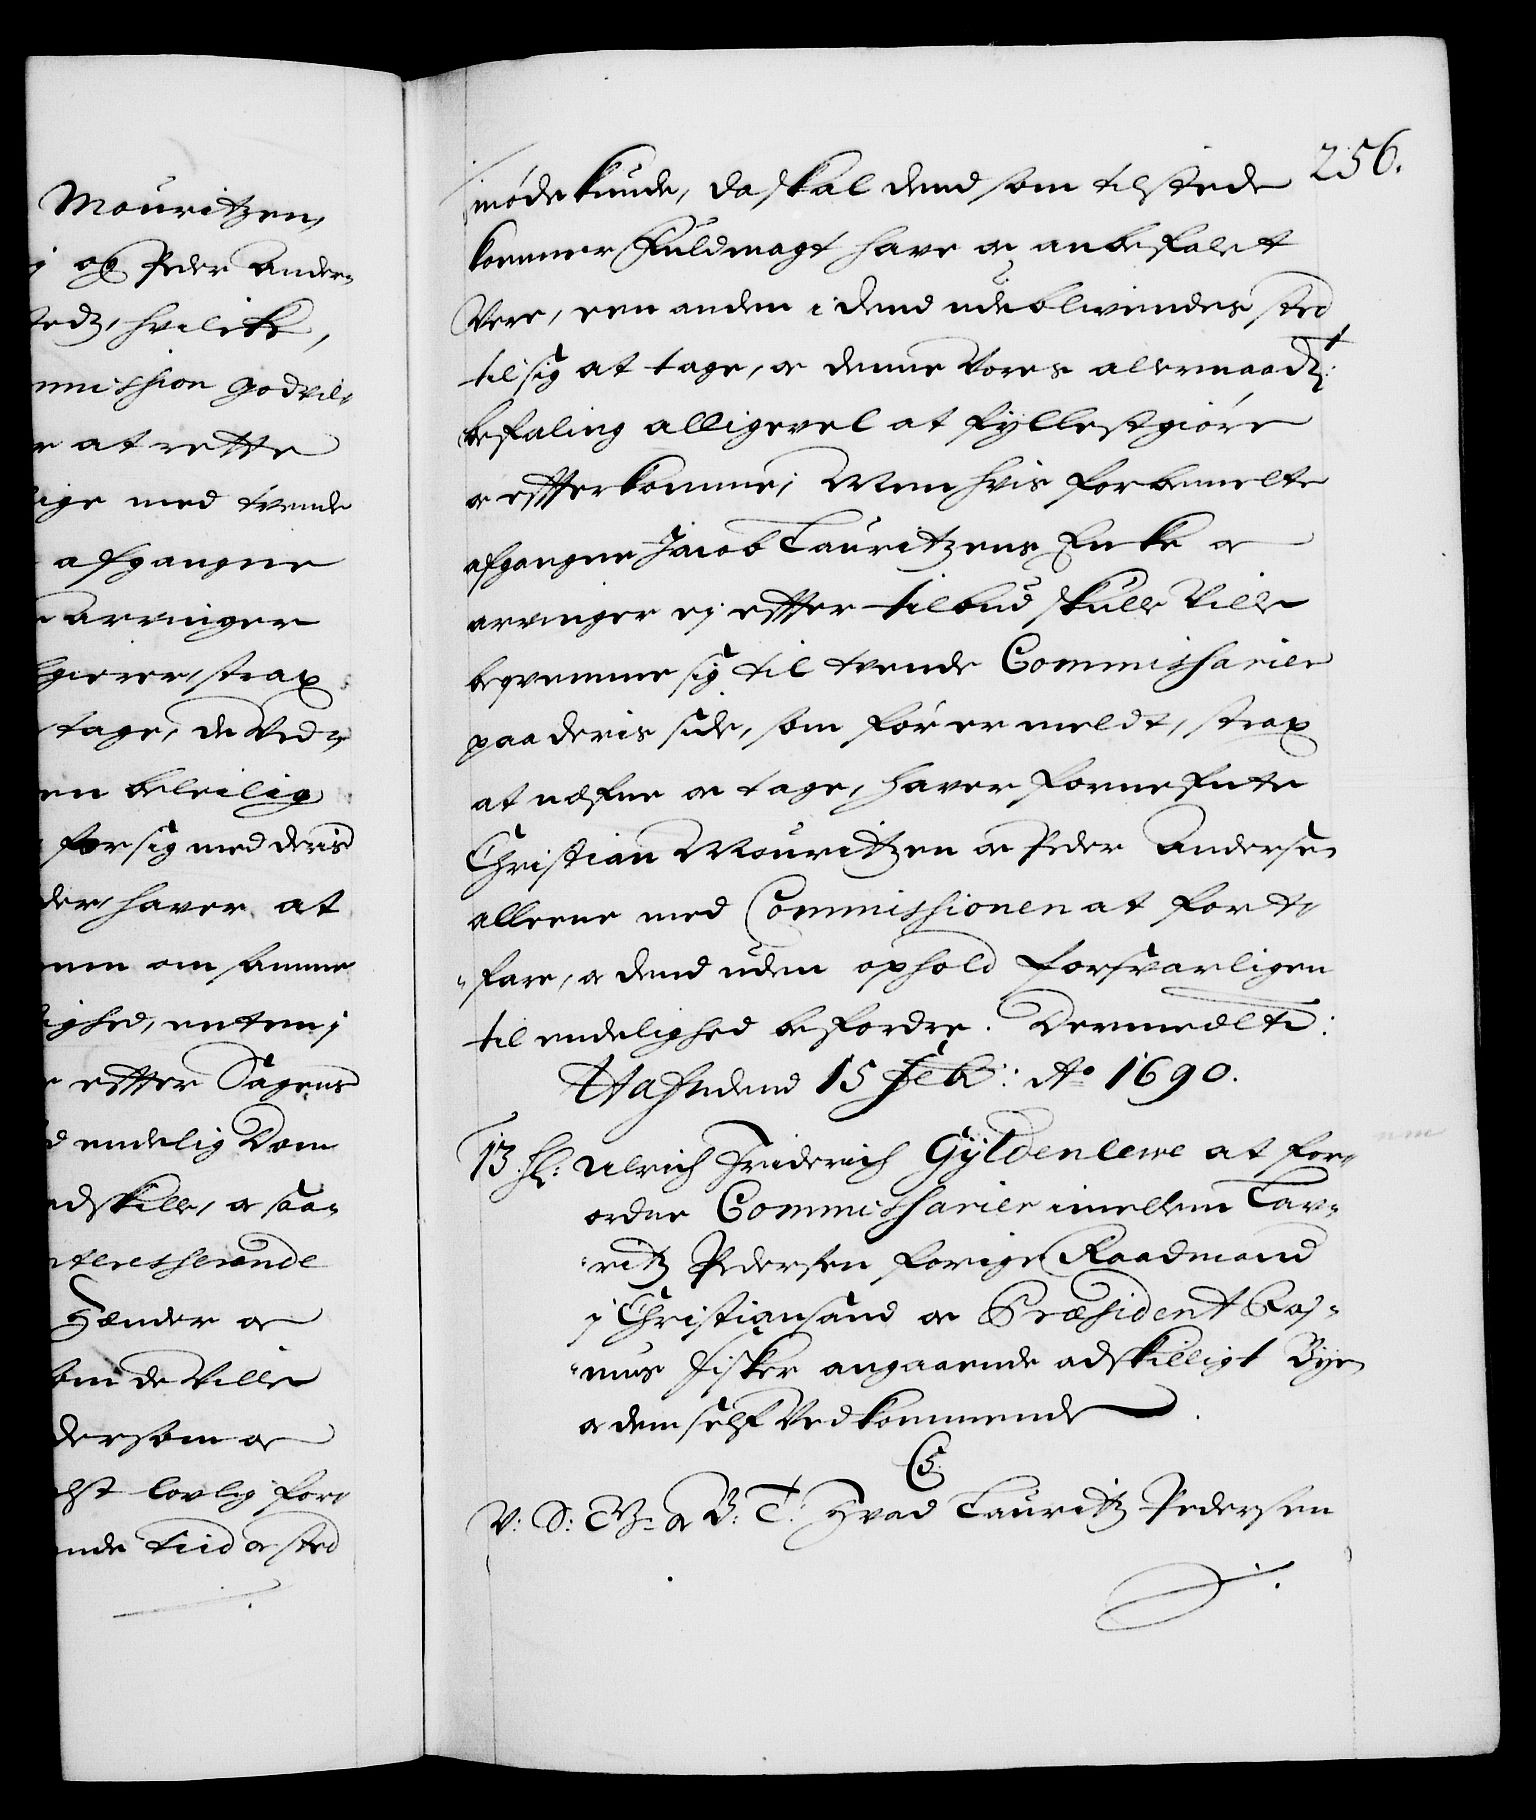 Mouritzen,
j og Peder Ander-
stedz, hvilcke,
mmission godvil-
r at rette
lige med tvende
afgangne
arvinger
strax
tage, de Ved-
en beleilig
for sig med deris
der, haver at
om samme
ighed, enten i
effter Sagens
d endelig Dom
adskille, og saa-
nteresserende
Hænder og
som de Ville
dersom og
lovlig for-
nde tiid og sted
256.
møde kunde, da skal dend som tilstede
kommer Fuldmagt have og anbefalet
Vere, een anden i dend udeblivendes sted
til sig at tage, og denne Vores allernaadt:
befaling alligevel at fyllestgiøre
og effterkomme; Men hvis forbemelte
afgangne Jacob Lauritzens Encke og
arvinger ej effter tilbud skulle Ville
beqvemme sig til tvende Commissarier
paa deris side, som før er meldt, strax
at nefne og tage, haver fornefnte
Christian Mouritzen og Peder Andersen
alleene med Commissionen at fort-
-fare, og dend uden ophold forsvarligen
til endelighed befordre. Dermed etc:
Hafn dend 15 Feb: Ao 1690.
13. Hr: Ulrich Friderich Gyldenlewe at for-
ordne Commissarier imellem Lau-
-ritz Pedersen forige Raadmand
i Christiansand og Præsident Ras-
-mus Fisker angaaende adskilligt Byen
og dem self Vedkommende.
C5.
V: S: G: og B: T: Hvad Lauritz Pedersen